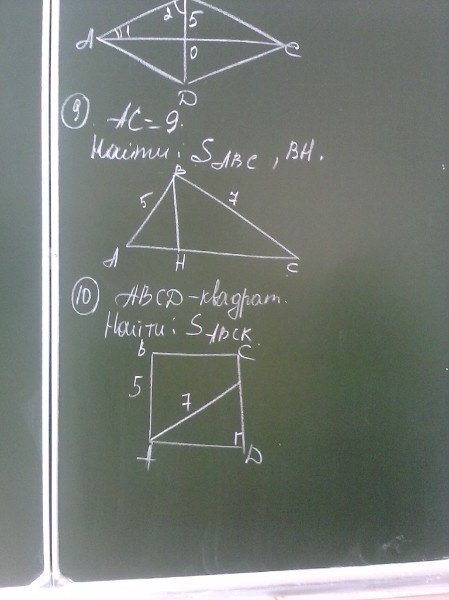 2 5
A 1 O C
D
9 AC = 9.
Найти: S ABC, BH.
B
5 7
A H C
10 ABCD - квадрат.
Найти: S ABCK
B C
5 7
A D